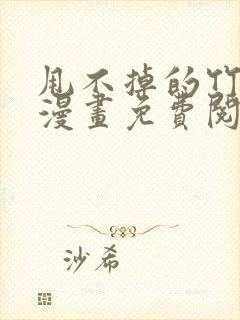 甩不掉的竹
漫畫免費閱
沙希